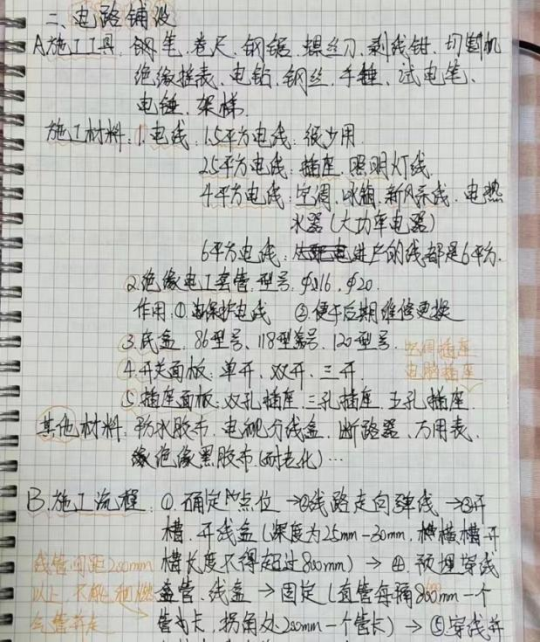 二、电路铺设
A.施工工具: 钢笔、卷尺、钢锯、螺丝刀、剥线钳、切割机
绝缘摇表、电钻、钢丝、手锤、试电笔、
电锤、架梯.
施工材料: 1.电线: 1.5平方电线: 很少用
2.5平方电线: 插座、照明灯线.
4平方电线: 空调、冰箱、新风系统、电热
水器(大功率电器)
6平方电线: 进户的线都是6平方.
2.绝缘电工套管.型号: φ16、φ20.
作用 ①保护电线 ②便于后期维修更换
3.底盒: 86型号、118型号、120型号.
空调插座
4.开关面板: 单开、双开、三开.
电脑插座
5.插座面板: 双孔插座、三孔插座、五孔插座.
其他材料: 防水胶布、电视分线盒、断路器、万用表、
绝缘黑胶布(耐老化)…
B.施工流程: ①.确定点位→②线路走向弹线→③开
槽、开线盒(深度为25mm-30mm, 横槽开
线管间距200mm
槽长度不得超过800mm)→④.预埋穿线
以上,不能和燃
套管、线盒→固定(直管每隔800mm一个
气管并走
管卡,拐角处200mm一个管卡)→⑤穿线并